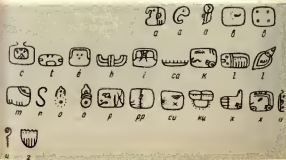 a a a в в
c t é h i ca k l l
m n o o p pp cu ku x x u
u z